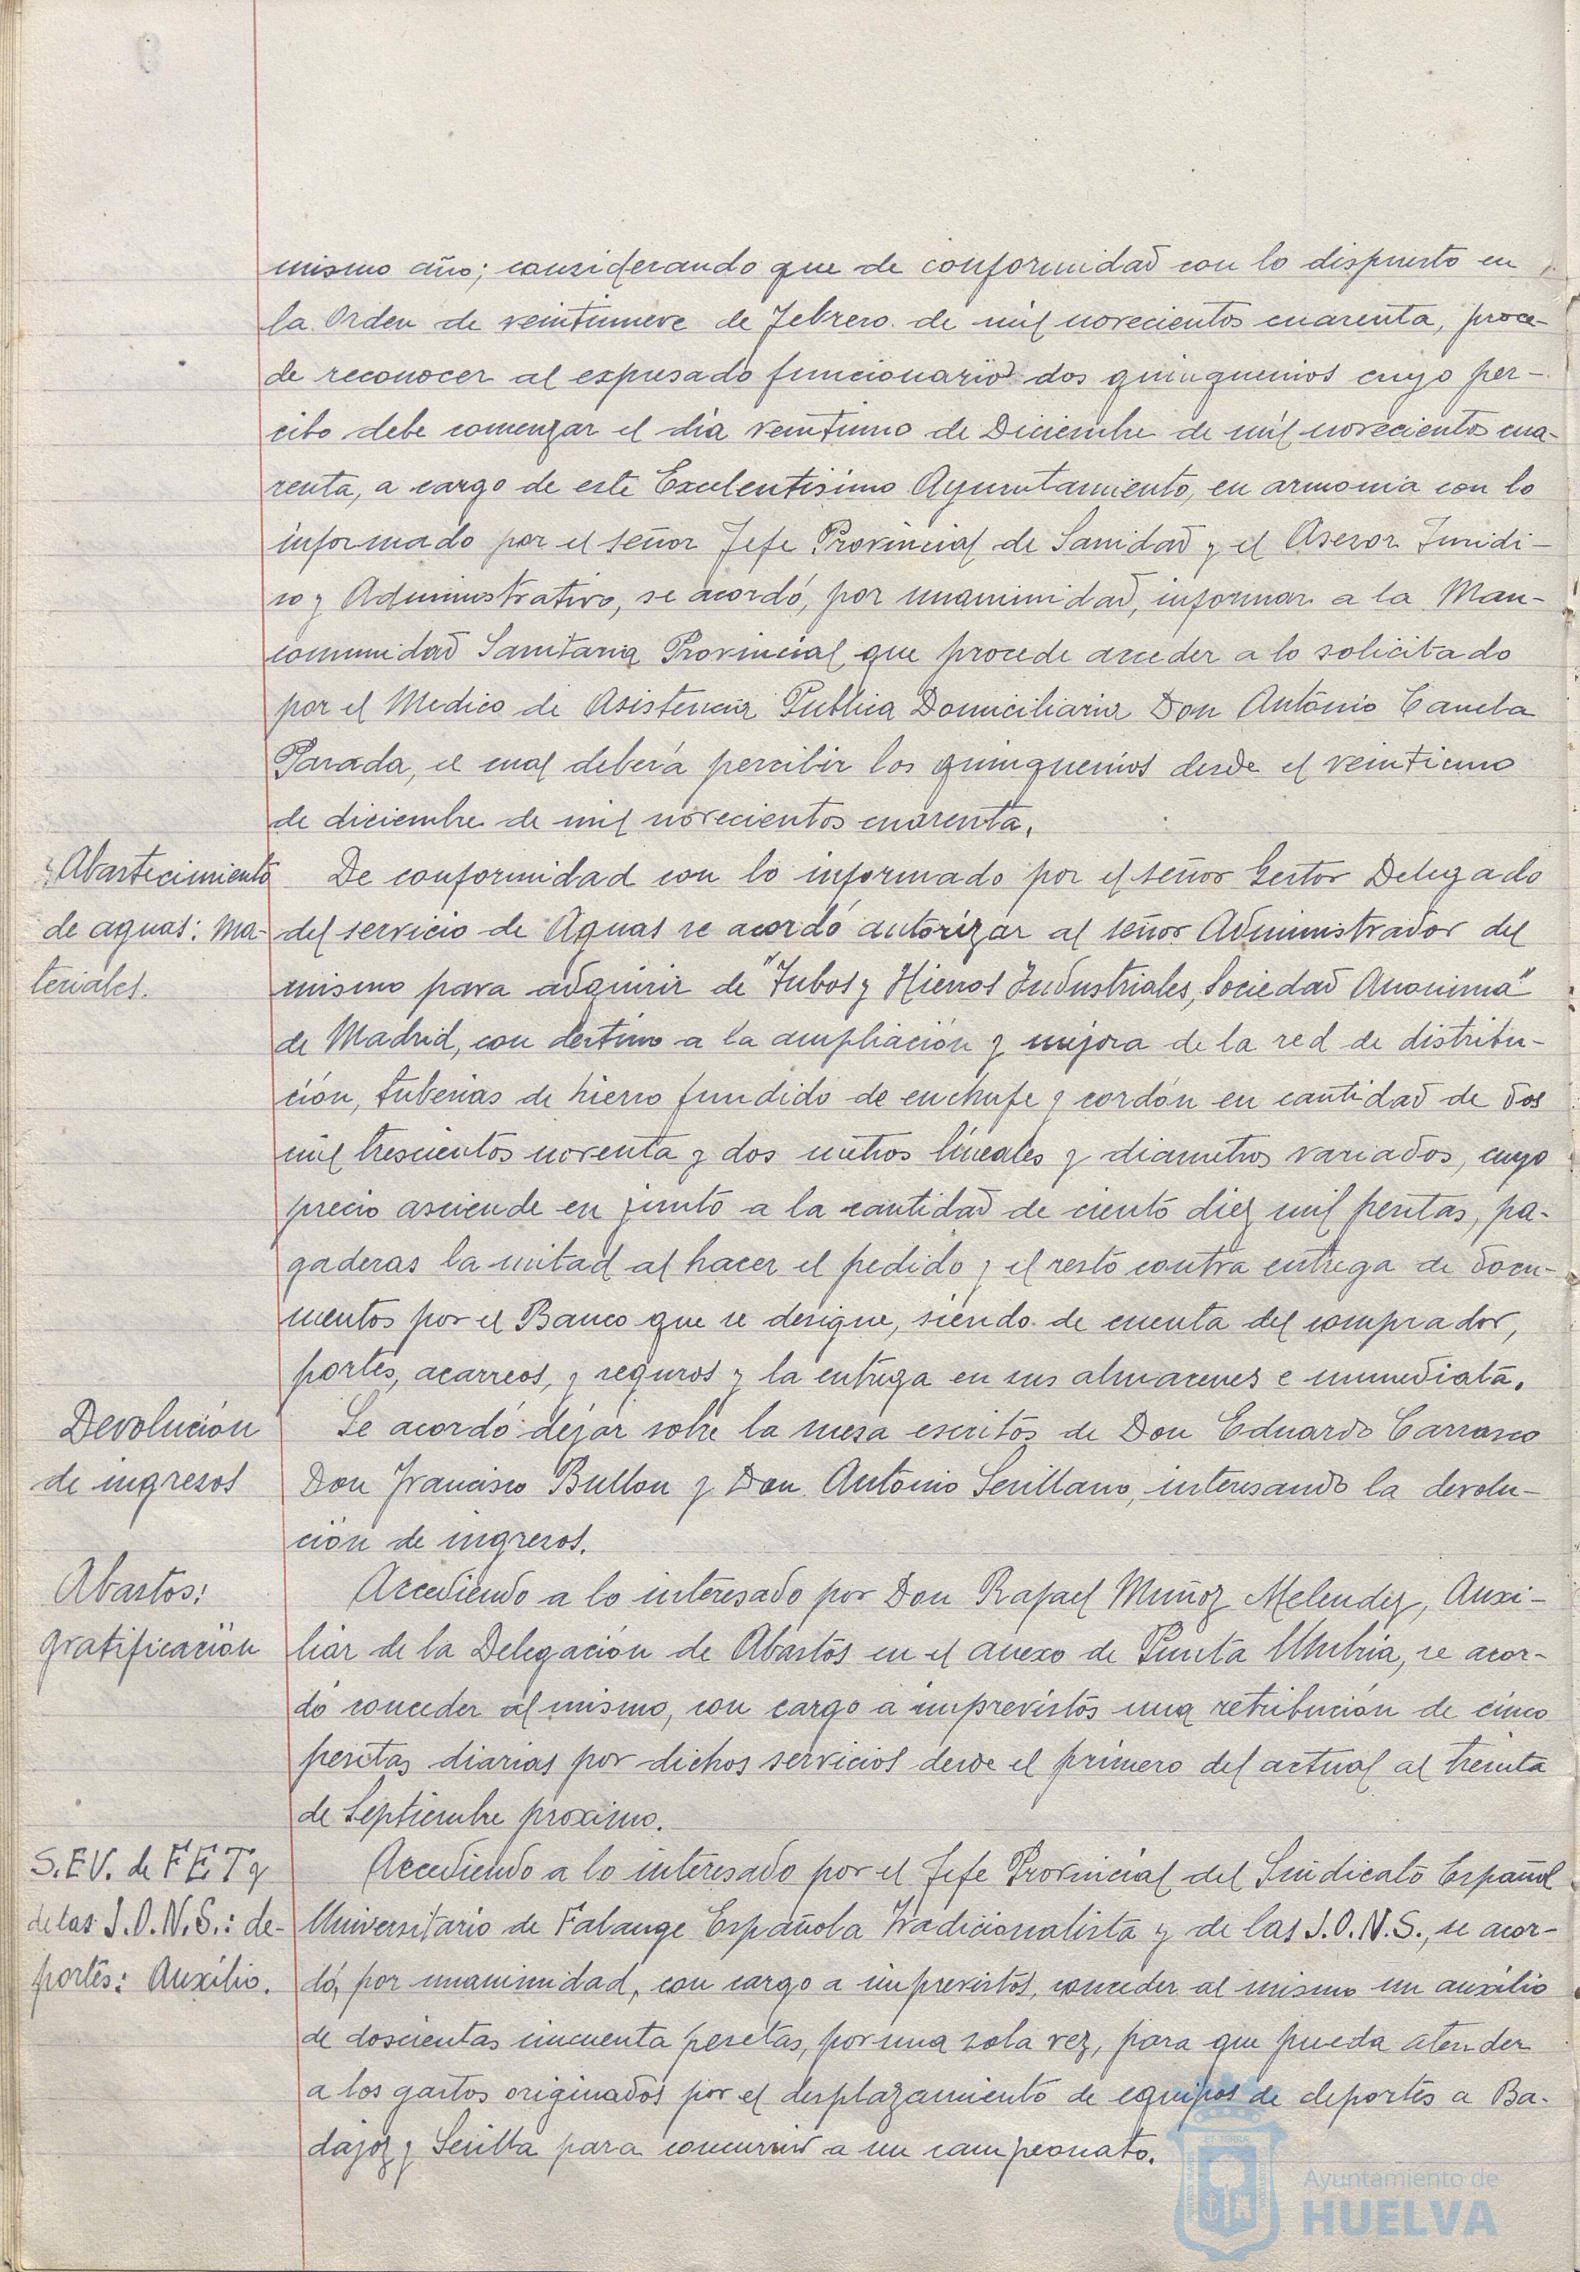 mismo año; considerando que de conformidad con lo dispuesto en
la Orden de veintinueve de Febrero de mil novecientos cuarenta, proce-
de reconocer al expresado funcionario dos quinquenios cuyo per-
cibo debe comenzar el día veintiuno de Diciembre de mil novecientos cua-
renta, a cargo de este Excelentisimo Ayuntamiento, en armonia con lo
informado por el señor Jefe Provincial de Sanidad y el Asesor Juridi-
co y Administrativo, se acordó, por unanimidad, informar a la Man-
comunidad Sanitaria Provincial que procede acceder a lo solicitado
por el Medico de Asistencia Publica Domiciliaria Don António Canela
Parada, el cual deberá percibir los quinquenios desde el veintiuno
de diciembre de mil novecientos cuarenta.
Abastecimiento
de aguas: Ma-
teriales.
De conformidad con lo informado por el señor Gestor Delegado
del servicio de Aguas se acordó autorizar al señor Administrador del
mismo para adquirir de "Tubos y Hierros Industriales, Sociedad Anonima"
de Madrid, con destino a la ampliación y mejora de la red de distribu-
ción, tuberias de hierro fundido de enchufe y cordón en cantidad de dos
mil trescientos noventa y dos metros lineales y diametros variados, cuyo
precio asciende en junto a la cantidad de ciento diez mil pesetas, pa-
gaderas la mitad al hacer el pedido y el resto contra entrega de docu-
mentos por el Banco que se designe, siendo de cuenta del comprador,
portes, acarreos, y seguros y la entrega en sus almacenes e inmediata.
Devolución
de ingresos
Se acordó dejar sobre la mesa escritos de Don Eduardo Carrasco
Don Francisco Bullon y Don António Sevillano, interesando la devolu-
ción de ingresos.
Abastos:
gratificación
Accediendo a lo interesado por Don Rafael Muñoz Melendez, Auxi-
liar de la Delegación de Abastos en el anexo de Punta Umbria, se acor-
dó conceder al mismo, con cargo a imprevistos una retribución de cinco
pesetas diarias por dichos servicios desde el primero del actual al treinta
de Septiembre proximo.
S.E.V. de F E T y
de las J.O.N.S.: de-
portes: Auxilio.
Accediendo a lo interesado por el Jefe Provincial del Sindicato Español
Universitario de Falange Española Tradicionalista y de las J.O.N.S., se acor-
dó, por unanimidad, con cargo a imprevistos, conceder al mismo un auxilio
de doscientas cincuenta pesetas, por una sola vez, para que pueda atender
a los gastos originados por el desplazamiento de equipos de deportes a Ba-
dajoz y Sevilla para concurrir a un campeonato.
Ayuntamiento de
HUELVA